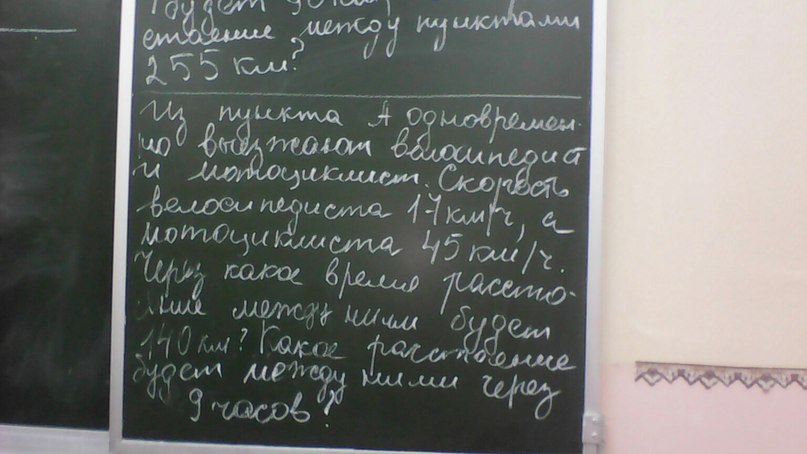 будет 90 км,
стояние между пунктами
255 км?
Из пункта А одновремен-
но выезжают велосипедист
и мотоциклист. Скорость
велосипедиста 17 км/ч, а
мотоциклиста 45 км/ч.
Через какое время расстоя-
ние между ними будет
140 км? Какое расстояние
будет между ними через
9 часов?